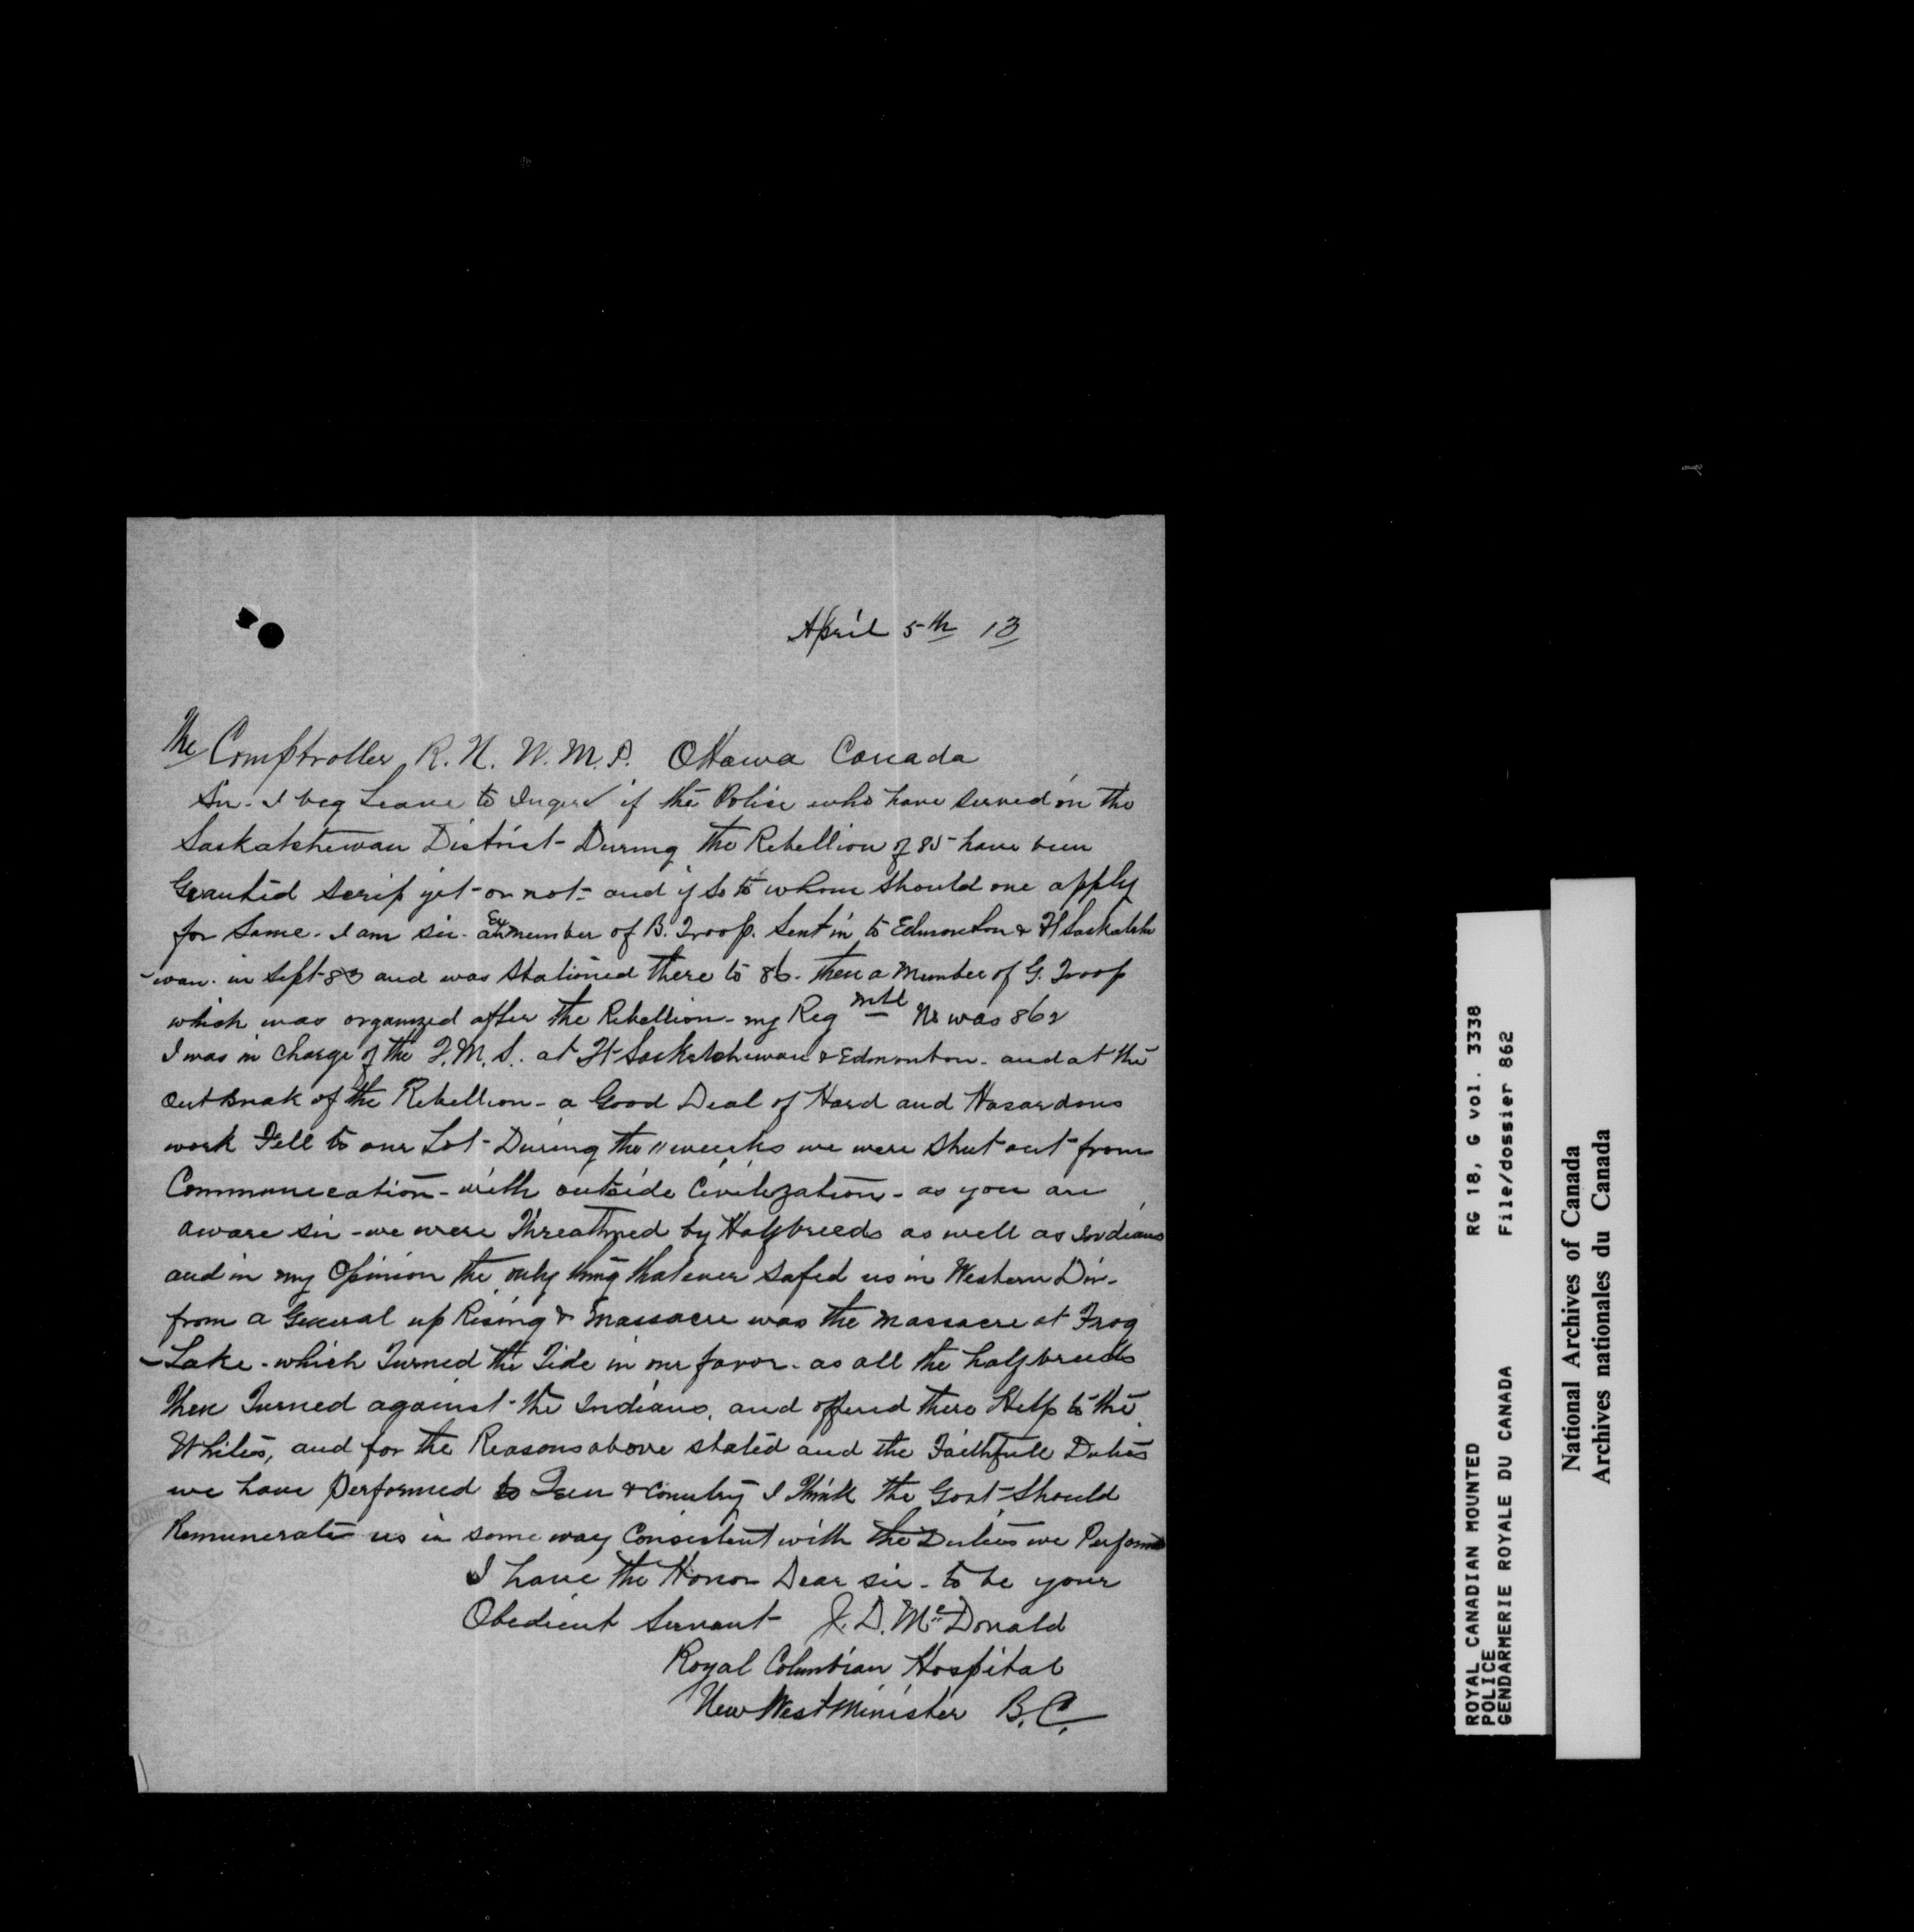 April 5th 13
The Comptroller R. N. W. M. P. Ottawa Canada
Sir - I beg Leave to if the Police who have served in the
Saskatchewan District - During the Rebellion of 85 have been
Granted Scrip yet - or not - and if so to whom should one apply
for Same. I am sir - an Ex member of B. Troop. Sent in to Edmonton & Ft Saskatche
-wan. in Sept 83 and was Stationed there to 86. then a Member of G. Troop
which was organized after the Rebellion - my Reg mtl No was 862
I was in charge of the at Ft Saskatchewan & Edmonton - and at the
Outbreak of the Rebellion - a Good Deal of Hard and Hasardous
work Fell to our Lot - During the 11 weeks we were Shut out from
Communication - with outside Civilization - as you are
aware sir - we were Threathned by Halfbreeds as well as Indians
and in my Opinion the only thing that ever safed us in Western Div -
from a General up Rising & Massacre was the Massacre at Frog
-Lake - which Turned the Tide in our favor - as all the halfbreeds
then Turned against the Indians, and offered there Help to the
Whites, and for the Reasons above stated and the Faithfull Duties
we have Performed to & Country I Think the Govt Should
Remunerate us in some way Consistent with the Duties we
I have the Honor Dear sir - to be your
Obedient Servant J. D. McDonald
Royal Columbian Hospital
New WestMinister B. C.
ROYAL CANADIAN MOUNTED RG 18, G vol. 3338
POLICE
GENDARMERIE ROYALE DU CANADA File/dossier 862
National Archives of Canada
Archives nationales du Canada